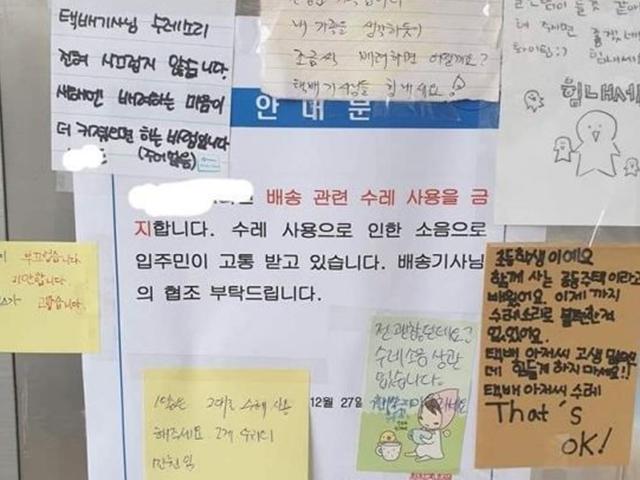 택배기사님 수레소리
전혀 시끄럽지 않습니다.
서로 배려하는 마음이
더 커졌으면 하는 바램입니다
내 가족을 생각하듯이
조금씩 배려하면 어떨까요?
택배기사님들 힘내세요!
힘내세
안 내 문
배송 관련 수레 사용을 금
지합니다. 수레 사용으로 인한 소음으로
입주민이 고통 받고 있습니다. 배송기사님
의 협조 부탁드립니다.
12월 27
부끄럽습니다
미안합니다
고맙습니다.
그대로 수레 사용
해주세요
전 괜찮던데요?
수레소음 상관
없습니다.
초등학생이에요
함께 사는 공동주택이라고
배웠어요. 이제까지
수레소리로 불편한적
없었어요.
택배 아저씨 고생 많으
데 힘들게 하지 마세요!!
택배 아저씨 수레
That's
OK!